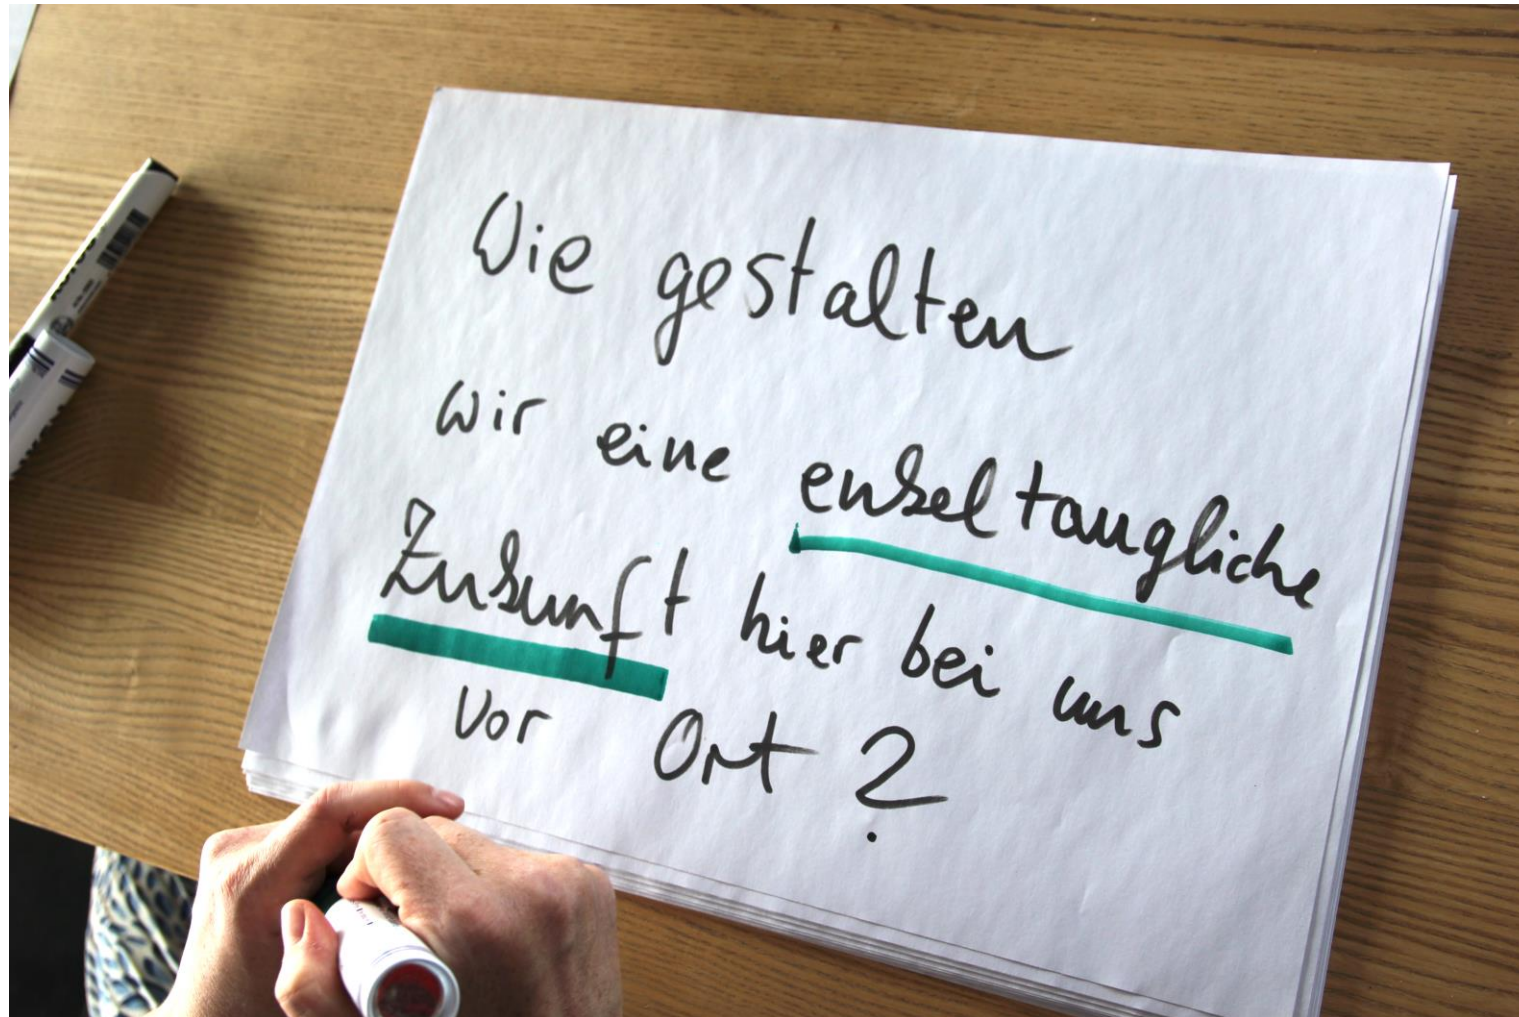 Wie gestalten
wir eine enkeltaugliche
Zukunft hier bei uns
vor Ort?